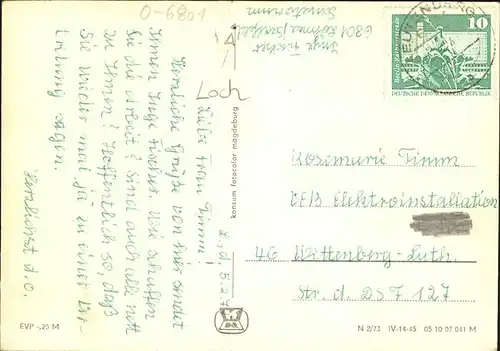 O-6801
Inge Fischer
6801
Sanatorium
Loch
L., d. 5.2.7
Liebe Frau Timm!
Herzliche Grüße von hier sendet
Ihnen Inge Fischer. Wie schaffen
Sie die Arbeit? Sind auch alle nett
zu Ihnen? Hoffentlich so, daß
Sie wieder mal ja zu einer Ver-
tretung sagen.
Herzlichst d. O.
10
DEUTSCHE DEMOKRATISCHE REPUBLIK
konsum fotocolor magdeburg
Rosemarie Timm
VEB Elektroinstallation
46 Wittenberg-Luth.
Str. d. DSF 127
EVP -,25 M
N 2/73 IV-14-45 05 10 07 041 M